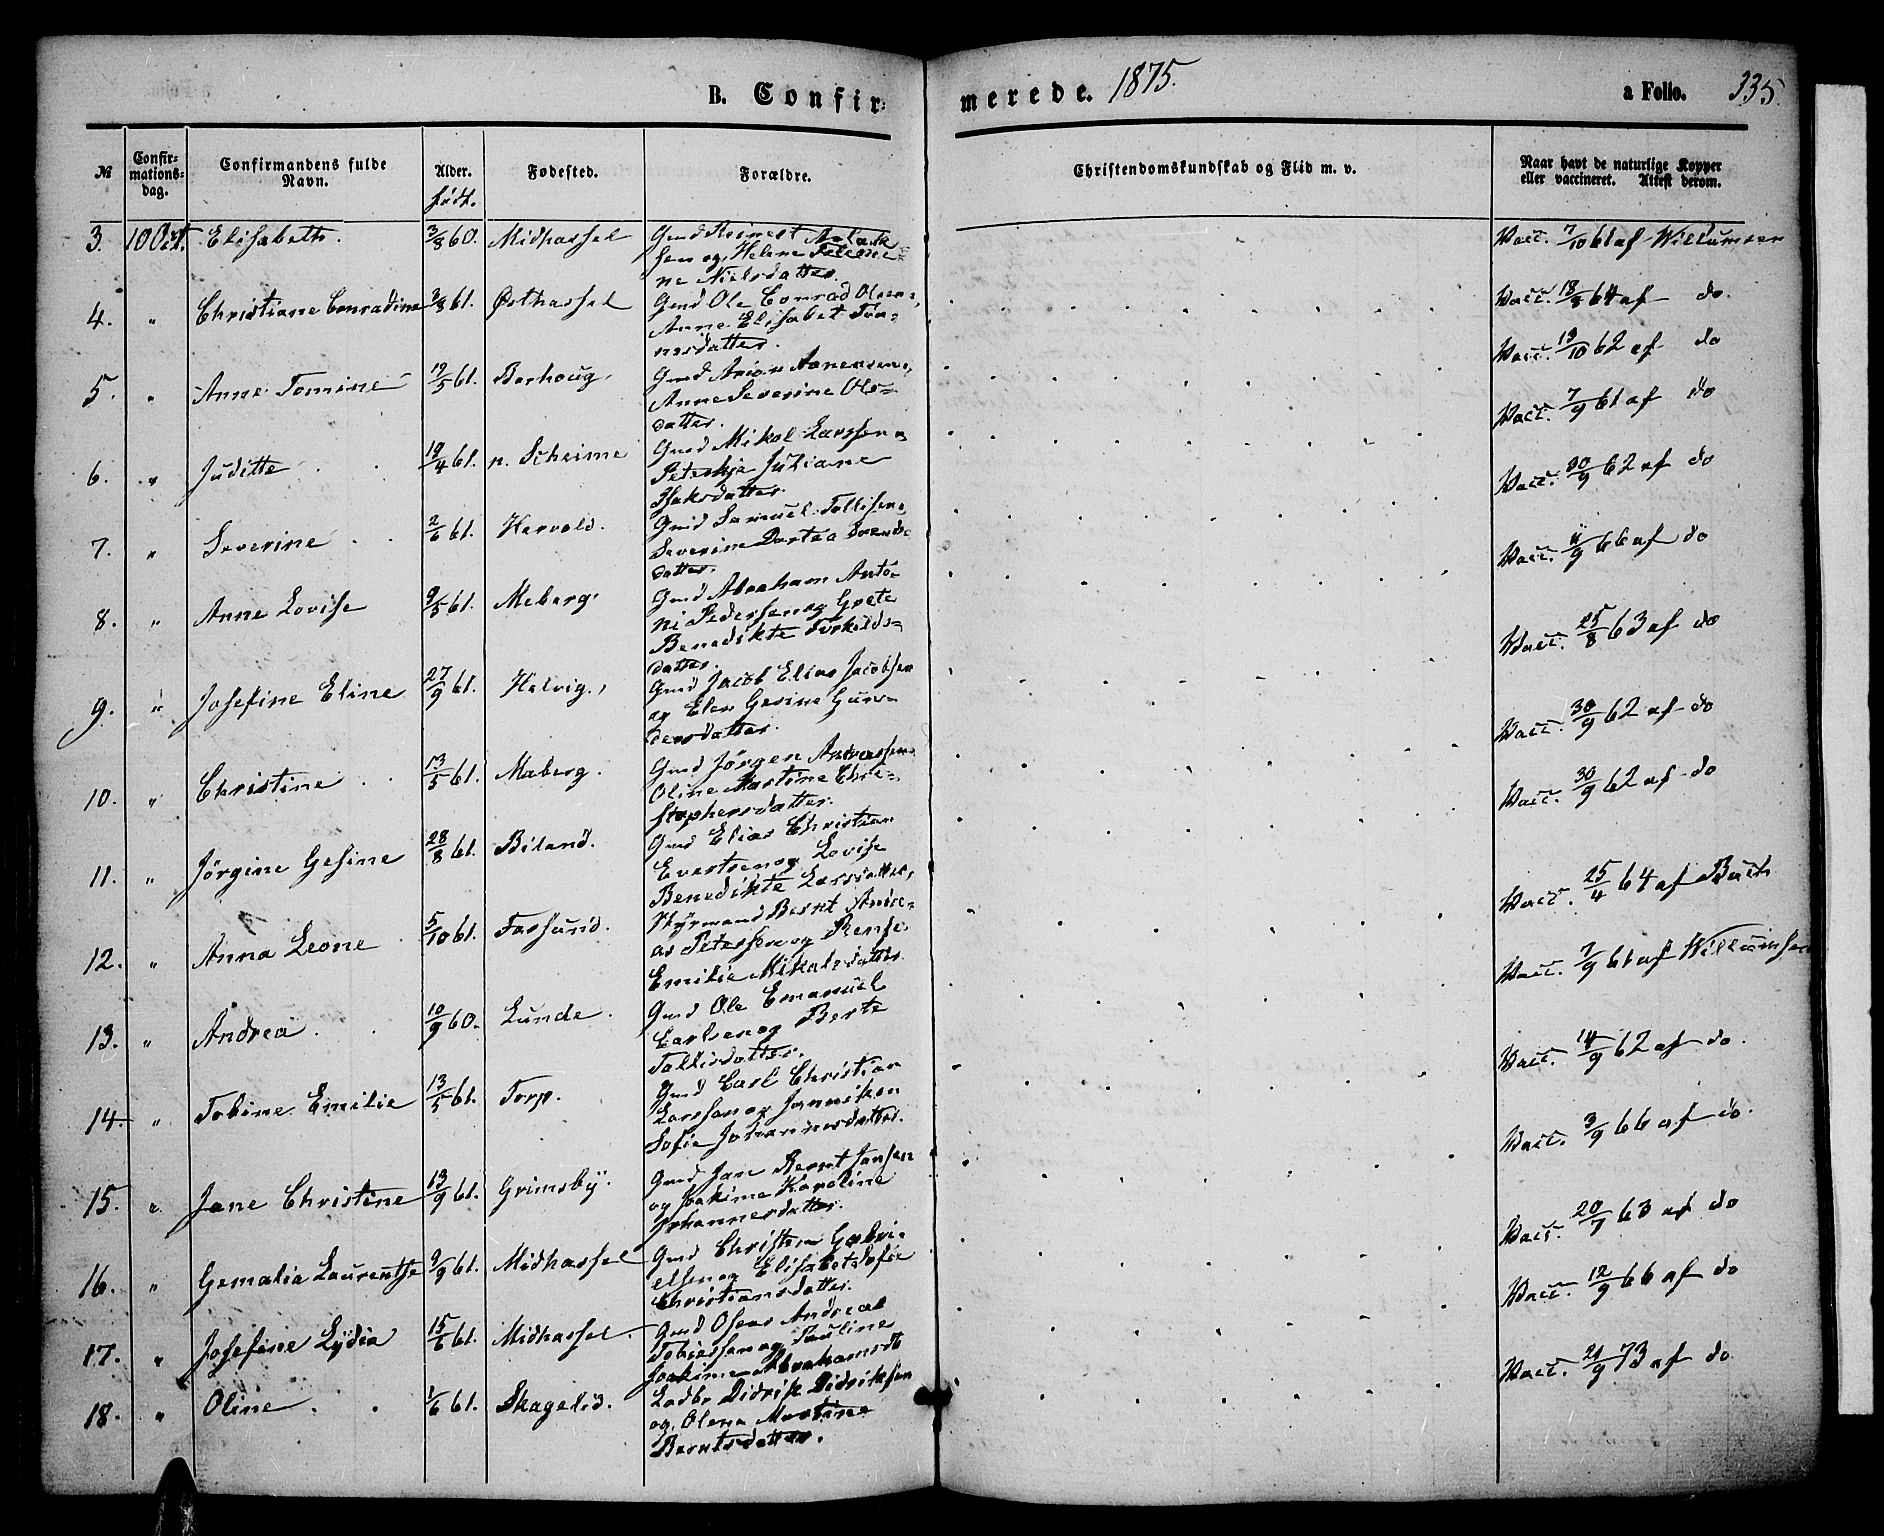 B. Confir-
merede. 1875.
a Folio. 335.
№
Confir-
mations-
dag.
Confirmandens fulde
Navn.
Alder.
født.
Fødested.
Forældre.
Christendomskundskab og Flid m. v.
Naar havt de naturlige Kopper
eller vaccineret. Attest derom.
3. 10 Oct. Elisabeth. 3/8 60. Midhassel Gmd Reinert
sen og Helene
ne Nielsdatter.
Vacc. 7/10 61 af Willumsen
4. " Christiane Conradine 3/8 61. Østhassel Gmd Ole Conrad Olsen,
Anne Elisabet Tøn-
nesdatter.
Vacc. 18/8 64 af do.
5. " Anne Tomine 19/5 61. Borhoug. Gmd Arion Aanensen,
Anne Severine Ols-
datter.
Vacc. 13/10 62 af do
6. " Juditte 19/4 61. n. Scheime Gmd Mikal Larssen,
Juliane
Isaksdatter.
Vacc. 7/9 61 af do
7. " Severine 2/6 61. Hervold. Gmd Samuel Tollisen,
Severine Dortea Svends-
datter.
Vacc. 30/9 62 af do
8. " Anne Lovise 9/5 61. Meberg. Gmd Abraham Anto-
ni Pedersen og Grete
Benedikte Torkilds-
datter.
Vacc. 11/9 66 af do
9. " Josefine Eline 27/9 61. Helvig. Gmd Jacob Elias Jacobsen
og Elen Gesine Gun-
dersdatter.
Vacc. 25/8 63 af do
10. " Christine 13/5 61. Maberg. Gmd Jørgen Andreassen
Oline Martine Chri-
stophersdatter.
Vacc. 30/9 62 af do
11. " Jørgine Gesine 28/8 61. Biland. Gmd Elias Christian
Evertsen og Lovise
Benedikte Larsdatter,
Vacc. 30/9 62 af do
12. " Anna Leone 5/10 61. Farsund. Styrmand Bernt Andre-
as Petersen og
Emilie Mikalsdatter
Vacc. 25/4 64 af Buch
13. " Andrea 10/9 60. Lunde. Gmd Ole Emanuel
Carlsen og Berte
Tollisdatter.
Vacc. 7/9 61 af Willumsen
14. " Tobine Emilie 13/5 61. Torp. Gmd Carl Christian
Larssen og Janniken
Sofie Johannesdatter.
Vacc. 14/9 62 af do.
15. " Jane Christine 13/9 61. Grimsby. Gmd Jan Bernt Jansen
og Joakime Karoline
Johannesdatter.
Vacc. 3/9 66 af do.
16. " Gemalia Laurentse 9/9 61. Midhassel Gmd Christen Gabri-
elsen og Elisabet Sofie
Christiansdatter.
Vacc. 20/7 63 af do
17. " Josefine Lydia 15/6 61. Midhassel Gmd Osear Andreas
Tobiessen og Pauline
Joakime Abrahamsdt
Vacc. 12/9 66 af do
18. " Oline 1/6 61. Skagelid. Ladbr Didrik Didriksen
og Olena Martine
Berntsdatter.
Vacc. 21/9 73 af do